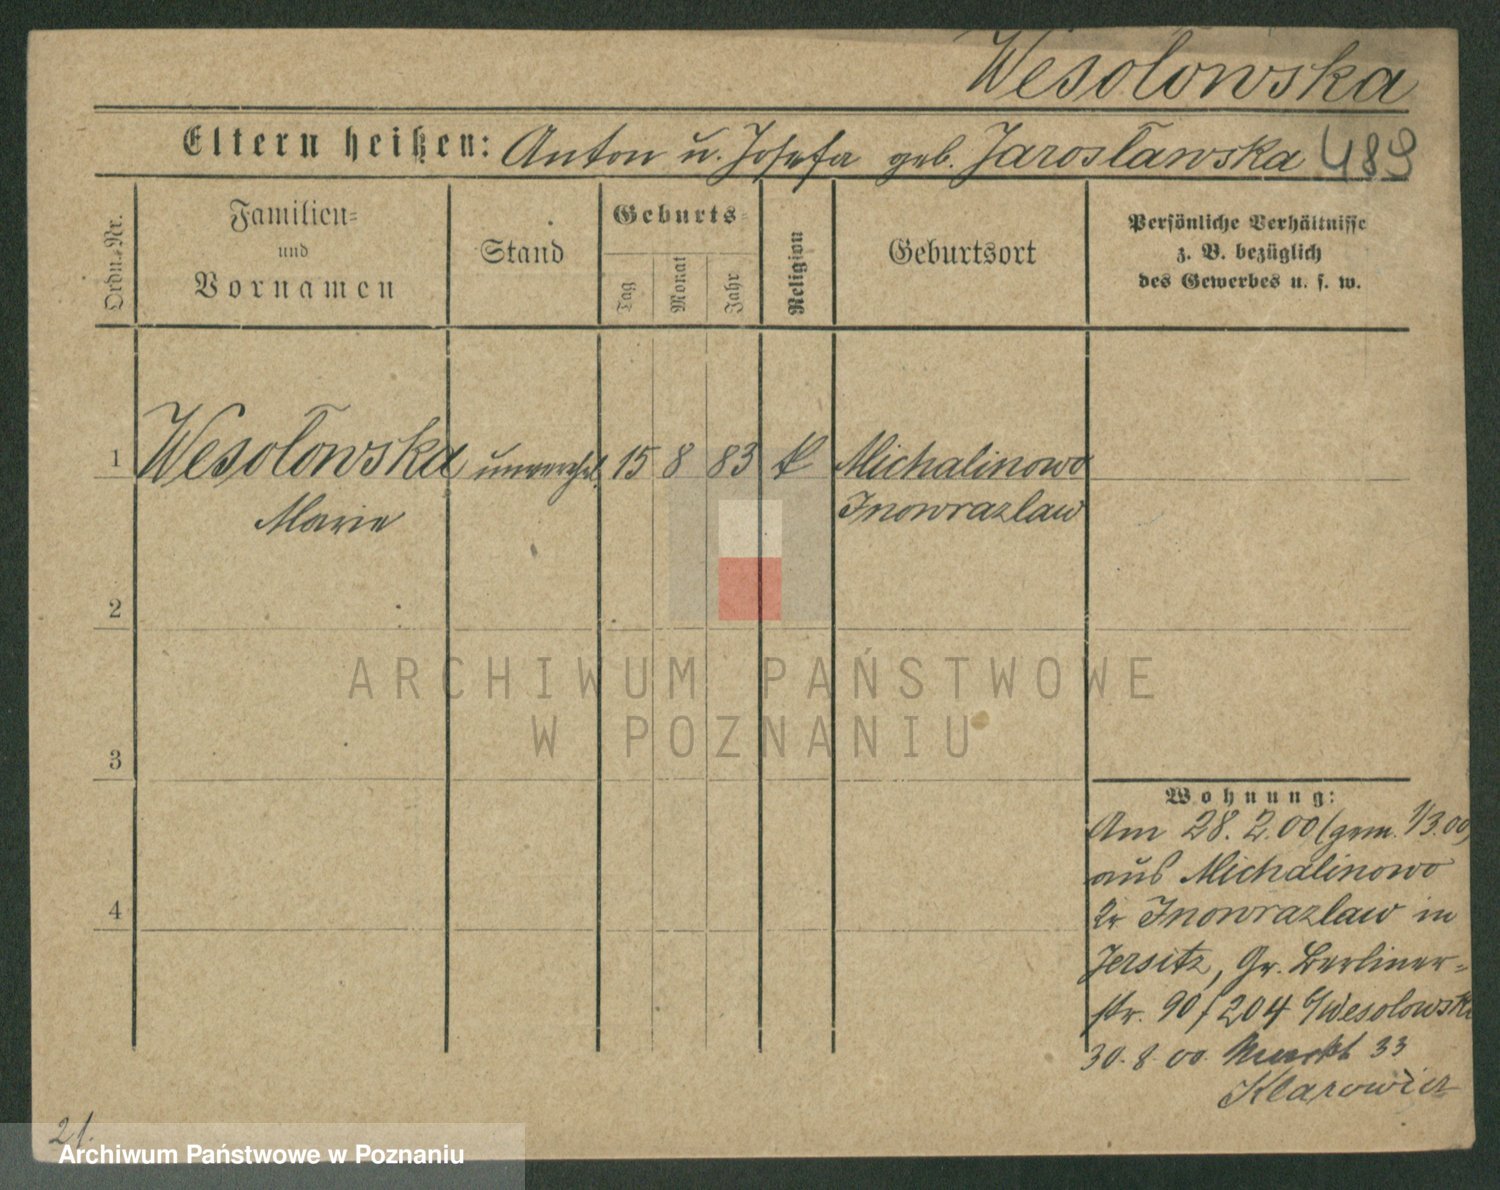 Wesołowska
Eltern heißen: Anton u. Josefa geb. Jarosławska 489
Ordn.-Nr.
Familien-
und
Vornamen
Stand
Geburts-
Tag
Monat
Jahr
Religion
Geburtsort
Persönliche Verhältnisse
z. B. bezüglich
des Gewerbes u. s. w.
1 Wesołowska unverehel. 15 8 83 k Michalinowo
Marie Inowrazlaw
2
3
4
Wohnung:
Am 28. 2. 00 (gem. 1/3. 00)
aus Michalinowo
Kr Inowrazlaw in
Jersitz, Gr. Berliner-
str. 90 / 204 b/Wesolowski
30. 8. 00. Markt 33
21.
ARCHIWUM PAŃSTWOWE
W POZNANIU
Archiwum Państwowe w Poznaniu